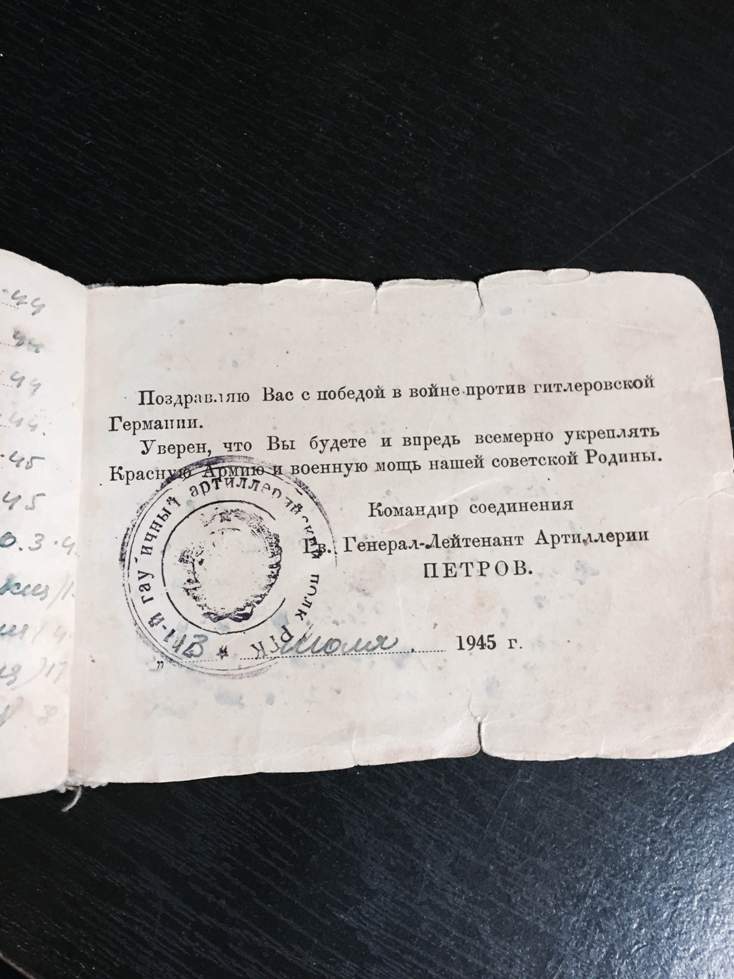 -44
44
-44
-44.
-45
45
0.3.4
Поздравляю Вас с победой в войне против гитлеровской
Германии.
Уверен, что Вы будете и впредь всемерно укреплять
Красную Армию и военную мощь нашей советской Родины.
Командир соединения
Гв. Генерал-Лейтенант Артиллерии
ПЕТРОВ.
артиллерийский полк РГК
июля 1945 г.